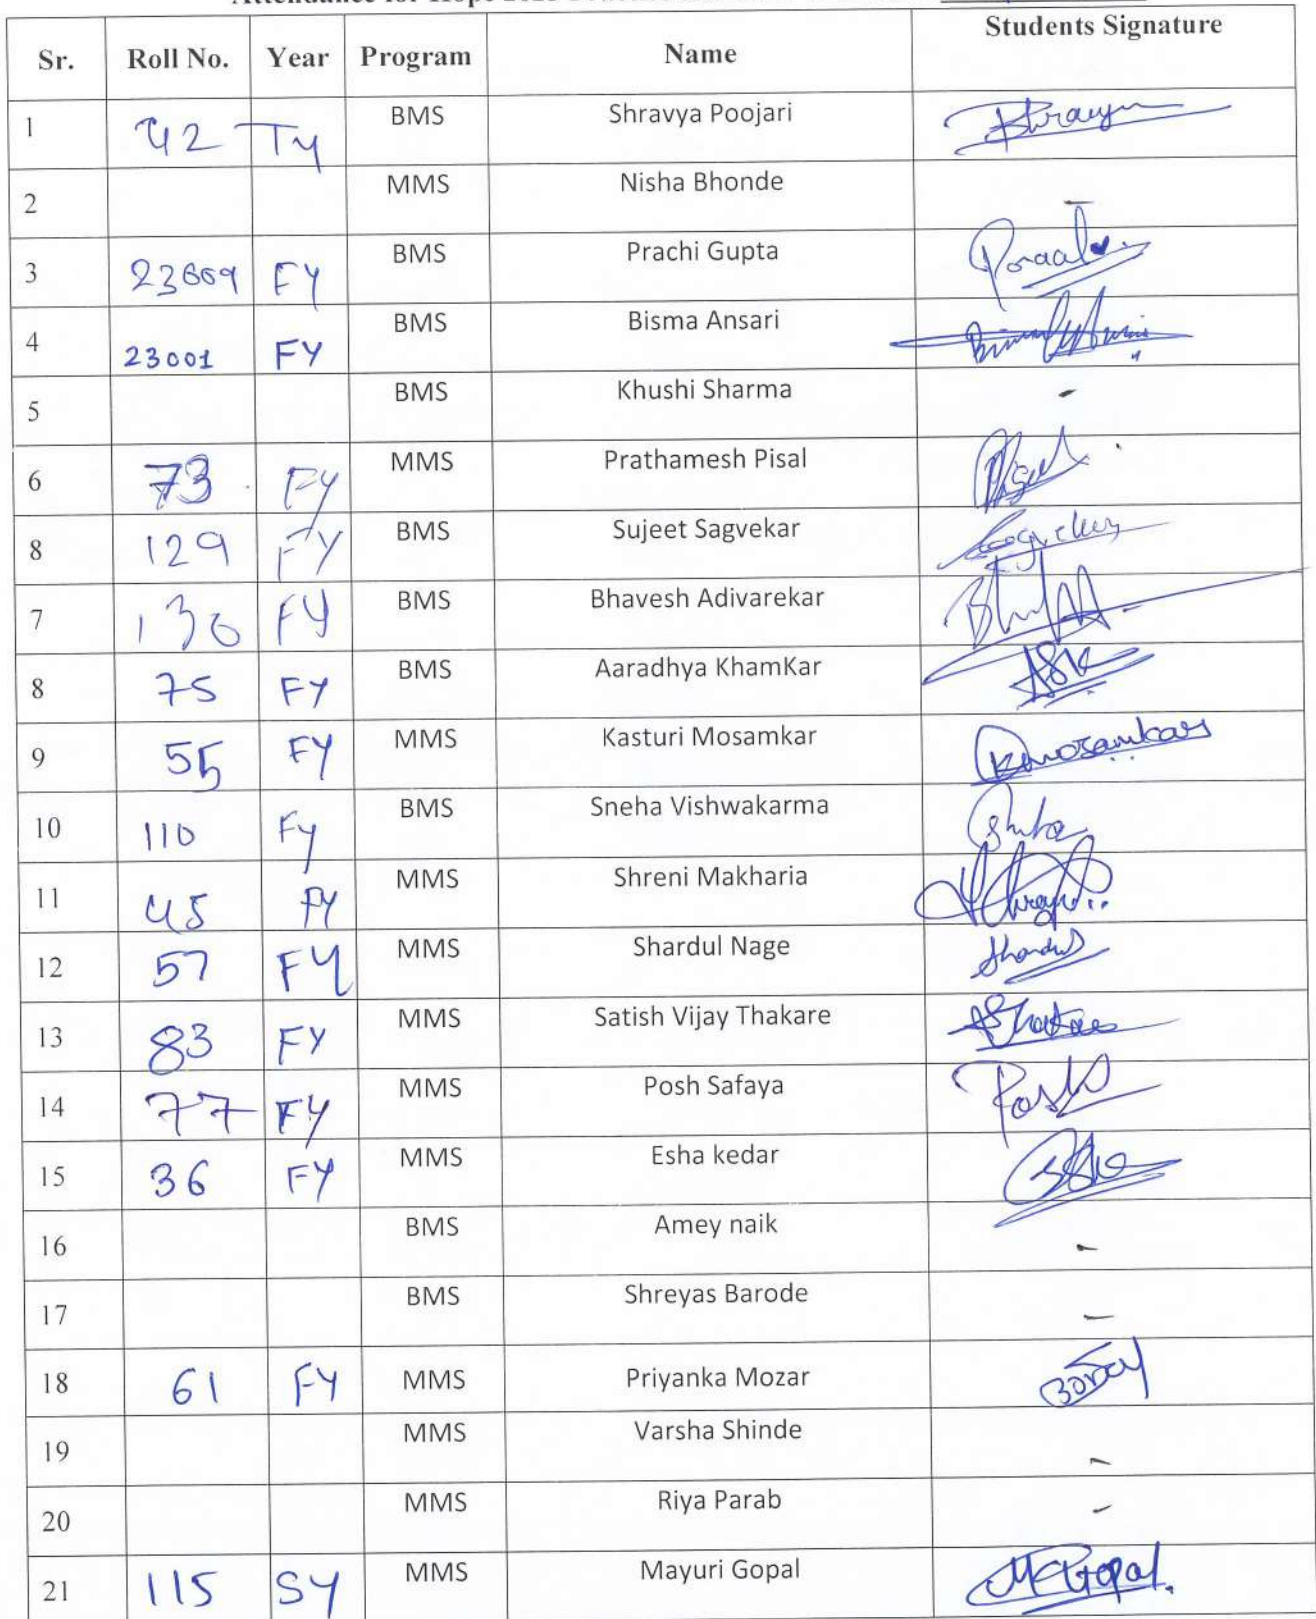 Sr. Roll No. Year Program Name Students Signature
1 42 Ty BMS Shravya Poojari
2 MMS Nisha Bhonde -
3 23609 FY BMS Prachi Gupta
4 23001 FY BMS Bisma Ansari
5 BMS Khushi Sharma -
6 73 FY MMS Prathamesh Pisal
8 129 FY BMS Sujeet Sagvekar
7 130 FY BMS Bhavesh Adivarekar
8 75 FY BMS Aaradhya KhamKar ASK
9 55 FY MMS Kasturi Mosamkar Kmosamkar
10 110 Fy BMS Sneha Vishwakarma
11 45 FY MMS Shreni Makharia
12 57 FY MMS Shardul Nage Shardul
13 83 FY MMS Satish Vijay Thakare
14 77 FY MMS Posh Safaya Posh
15 36 FY MMS Esha kedar
16 BMS Amey naik -
17 BMS Shreyas Barode -
18 61 FY MMS Priyanka Mozar
19 MMS Varsha Shinde -
20 MMS Riya Parab -
21 115 SY MMS Mayuri Gopal MGopal.